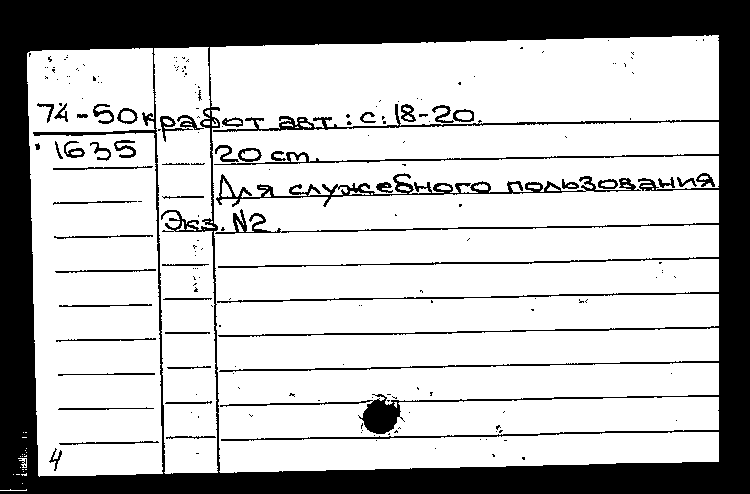 74-50к работ авт.: с. 18-20.
1635 20 cm.
Для служебного пользования
Экз. N2.
4